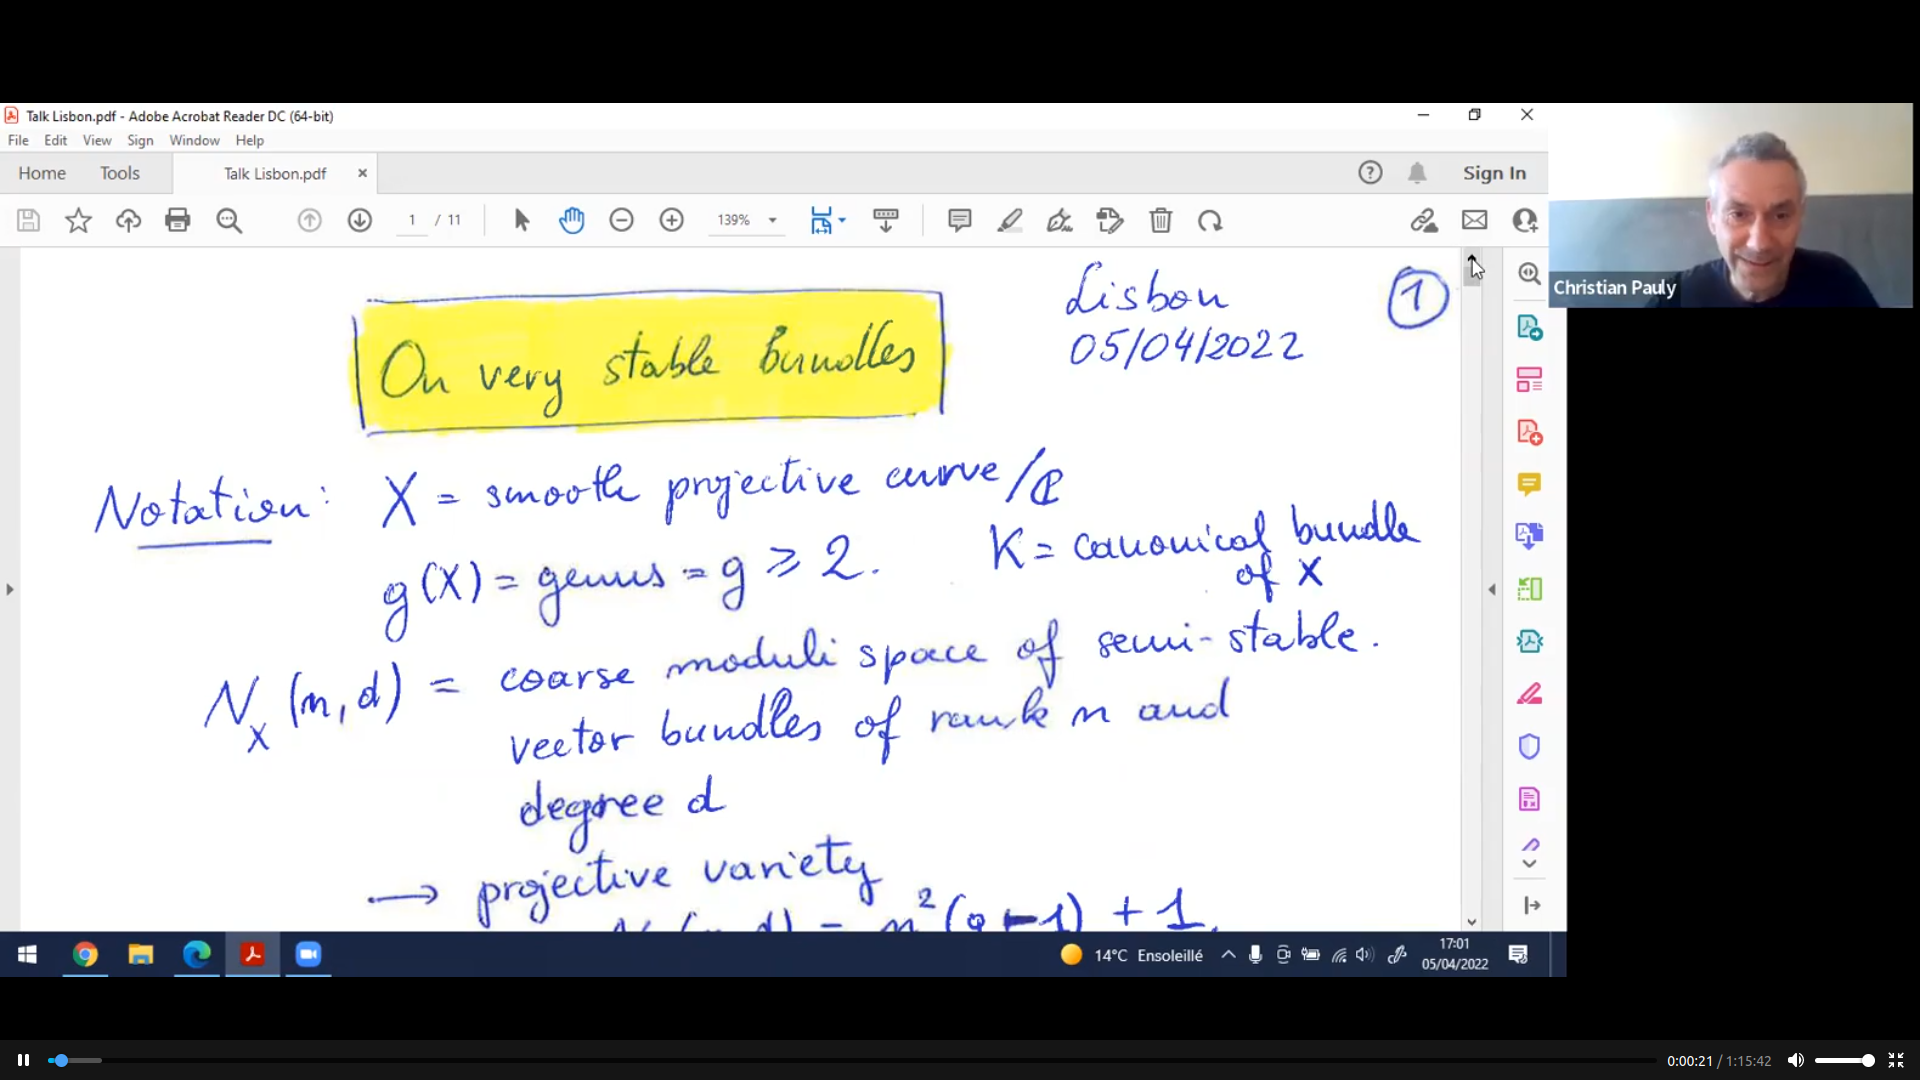 Talk Lisbon.pdf - Adobe Acrobat Reader DC (64-bit)
File Edit View Sign Window Help
Home Tools Talk Lisbon.pdf × Sign In
1 / 11 139%
Christian Pauly
Lisbon 1
05/04/2022
On very stable bundles
Notation: X = smooth projective curve / ℂ
g(X) = genus = g ⩾ 2. K = canonical bundle
of X
N_X (n, d) = coarse moduli space of semi-stable.
vector bundles of rank n and
degree d
→ projective variety
n²(g-1) + 1.
14°C Ensoleillé
17:01
05/04/2022
0:00:21 / 1:15:42